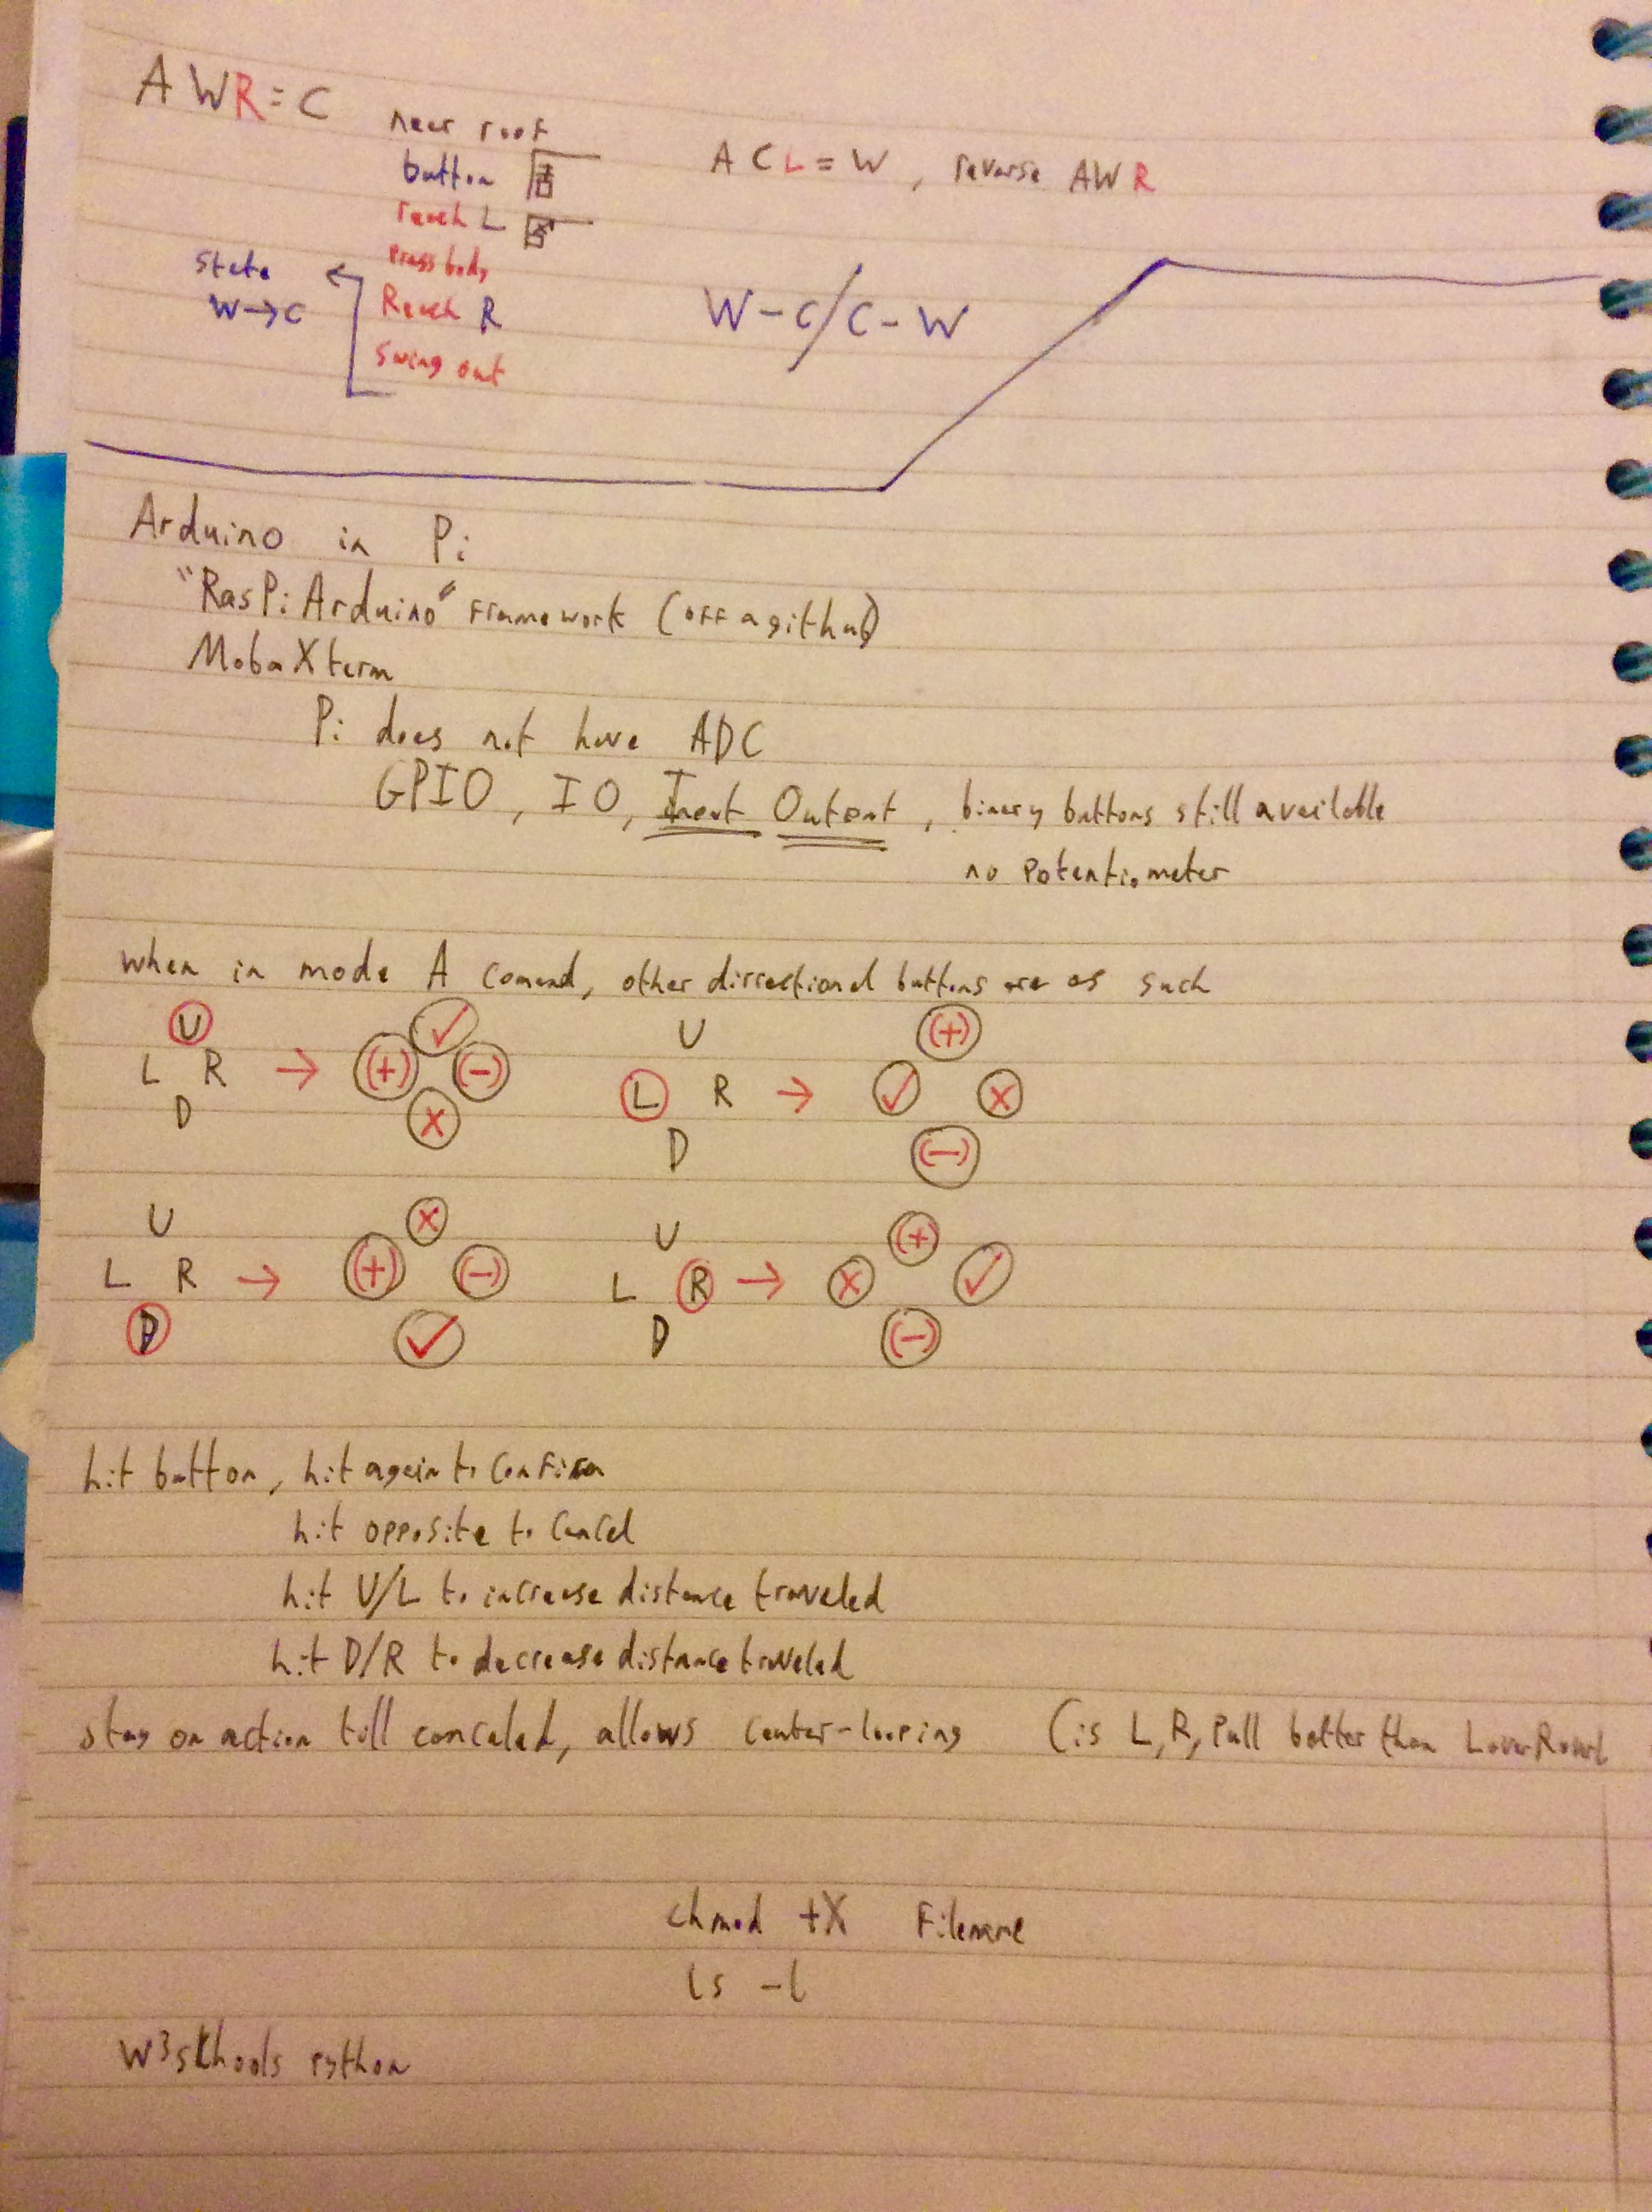 AWR = C
near roof
button
reach L
press body
Reach R
swing out
state
W→C
ACL = W, reverse AWR
W-C/C-W
Arduino in Pi
"RasPiArduino" framework (off a github)
MobaXterm
Pi does not have ADC
GPIO, IO, Input Output, binary buttons still available
no potentiometer
when in mode A comand, other dirrectional buttons are as such
U
L R → (+) ✓ (-)
D X
U (+)
L R → ✓ X
D (-)
U X
L R → (+) (-)
D ✓
U (+)
L R → X ✓
D (-)
hit button, hit again to confirm
hit opposite to cancel
hit U/L to increase distance traveled
hit D/R to decrease distance traveled
stay on action till canceled, allows center-looping (is L, R, Pull better than
chmod +X Filename
ls -l
W3schools python